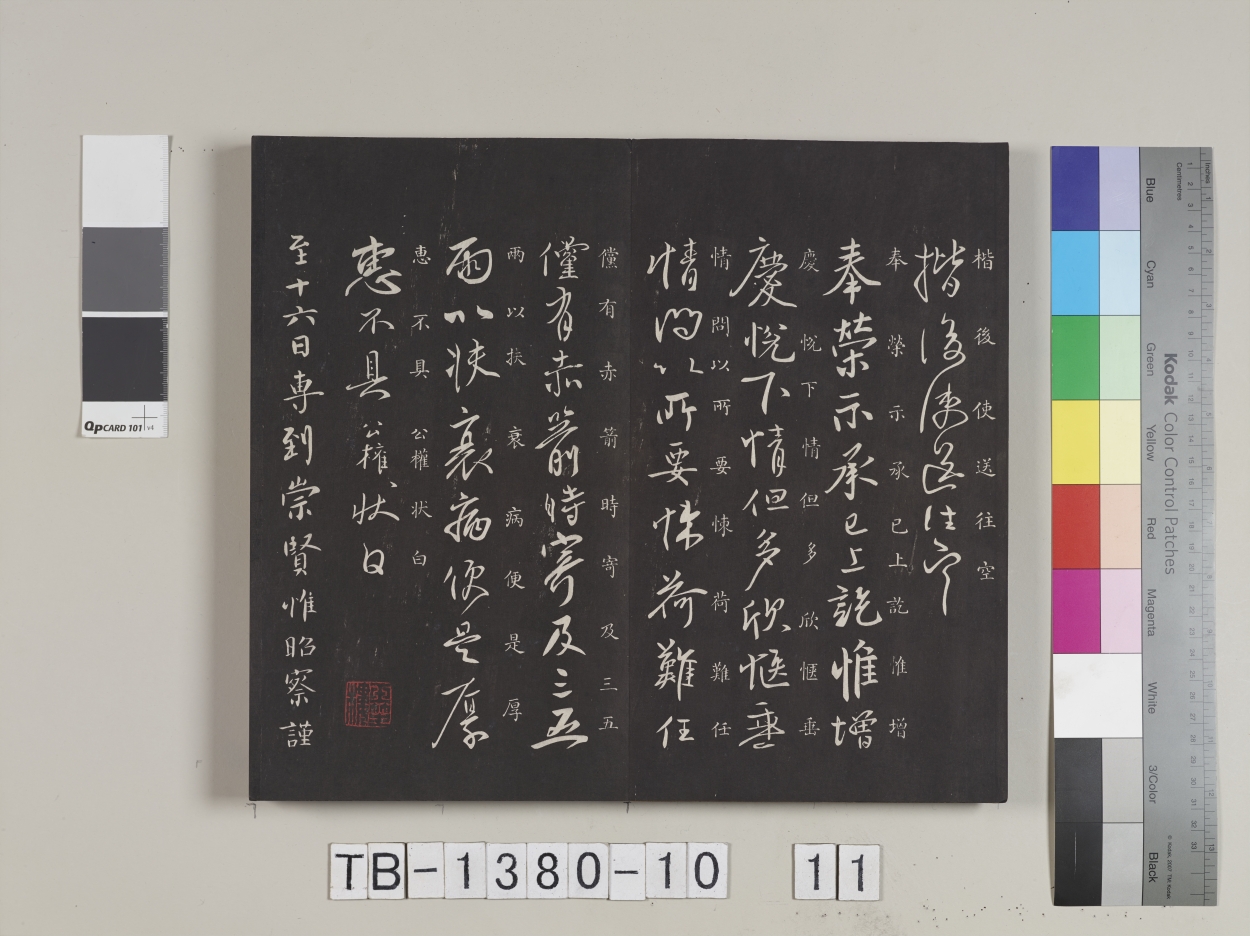 楷後使送往空
楷後使送往空
奉榮示承已上訖惟增
奉榮示承已上訖惟增
慶悅下情但多欣愜垂
慶悅下情但多欣愜垂
情問以所要悚荷難任
情問以所要悚荷難任
儻有赤箭時寄及三五
儻有赤箭時寄及三五
兩以扶衰病便是厚
兩以扶衰病便是厚
惠不具公權状白
惠不具公權状白
至十六日専到崇賢惟昭察謹
QPCARD 101 v4
Kodak Color Control Patches
Blue
Cyan
Green
Yellow
Red
Magenta
White
3/Color
Black
Inches
Centimetres
TB-1380-10 11